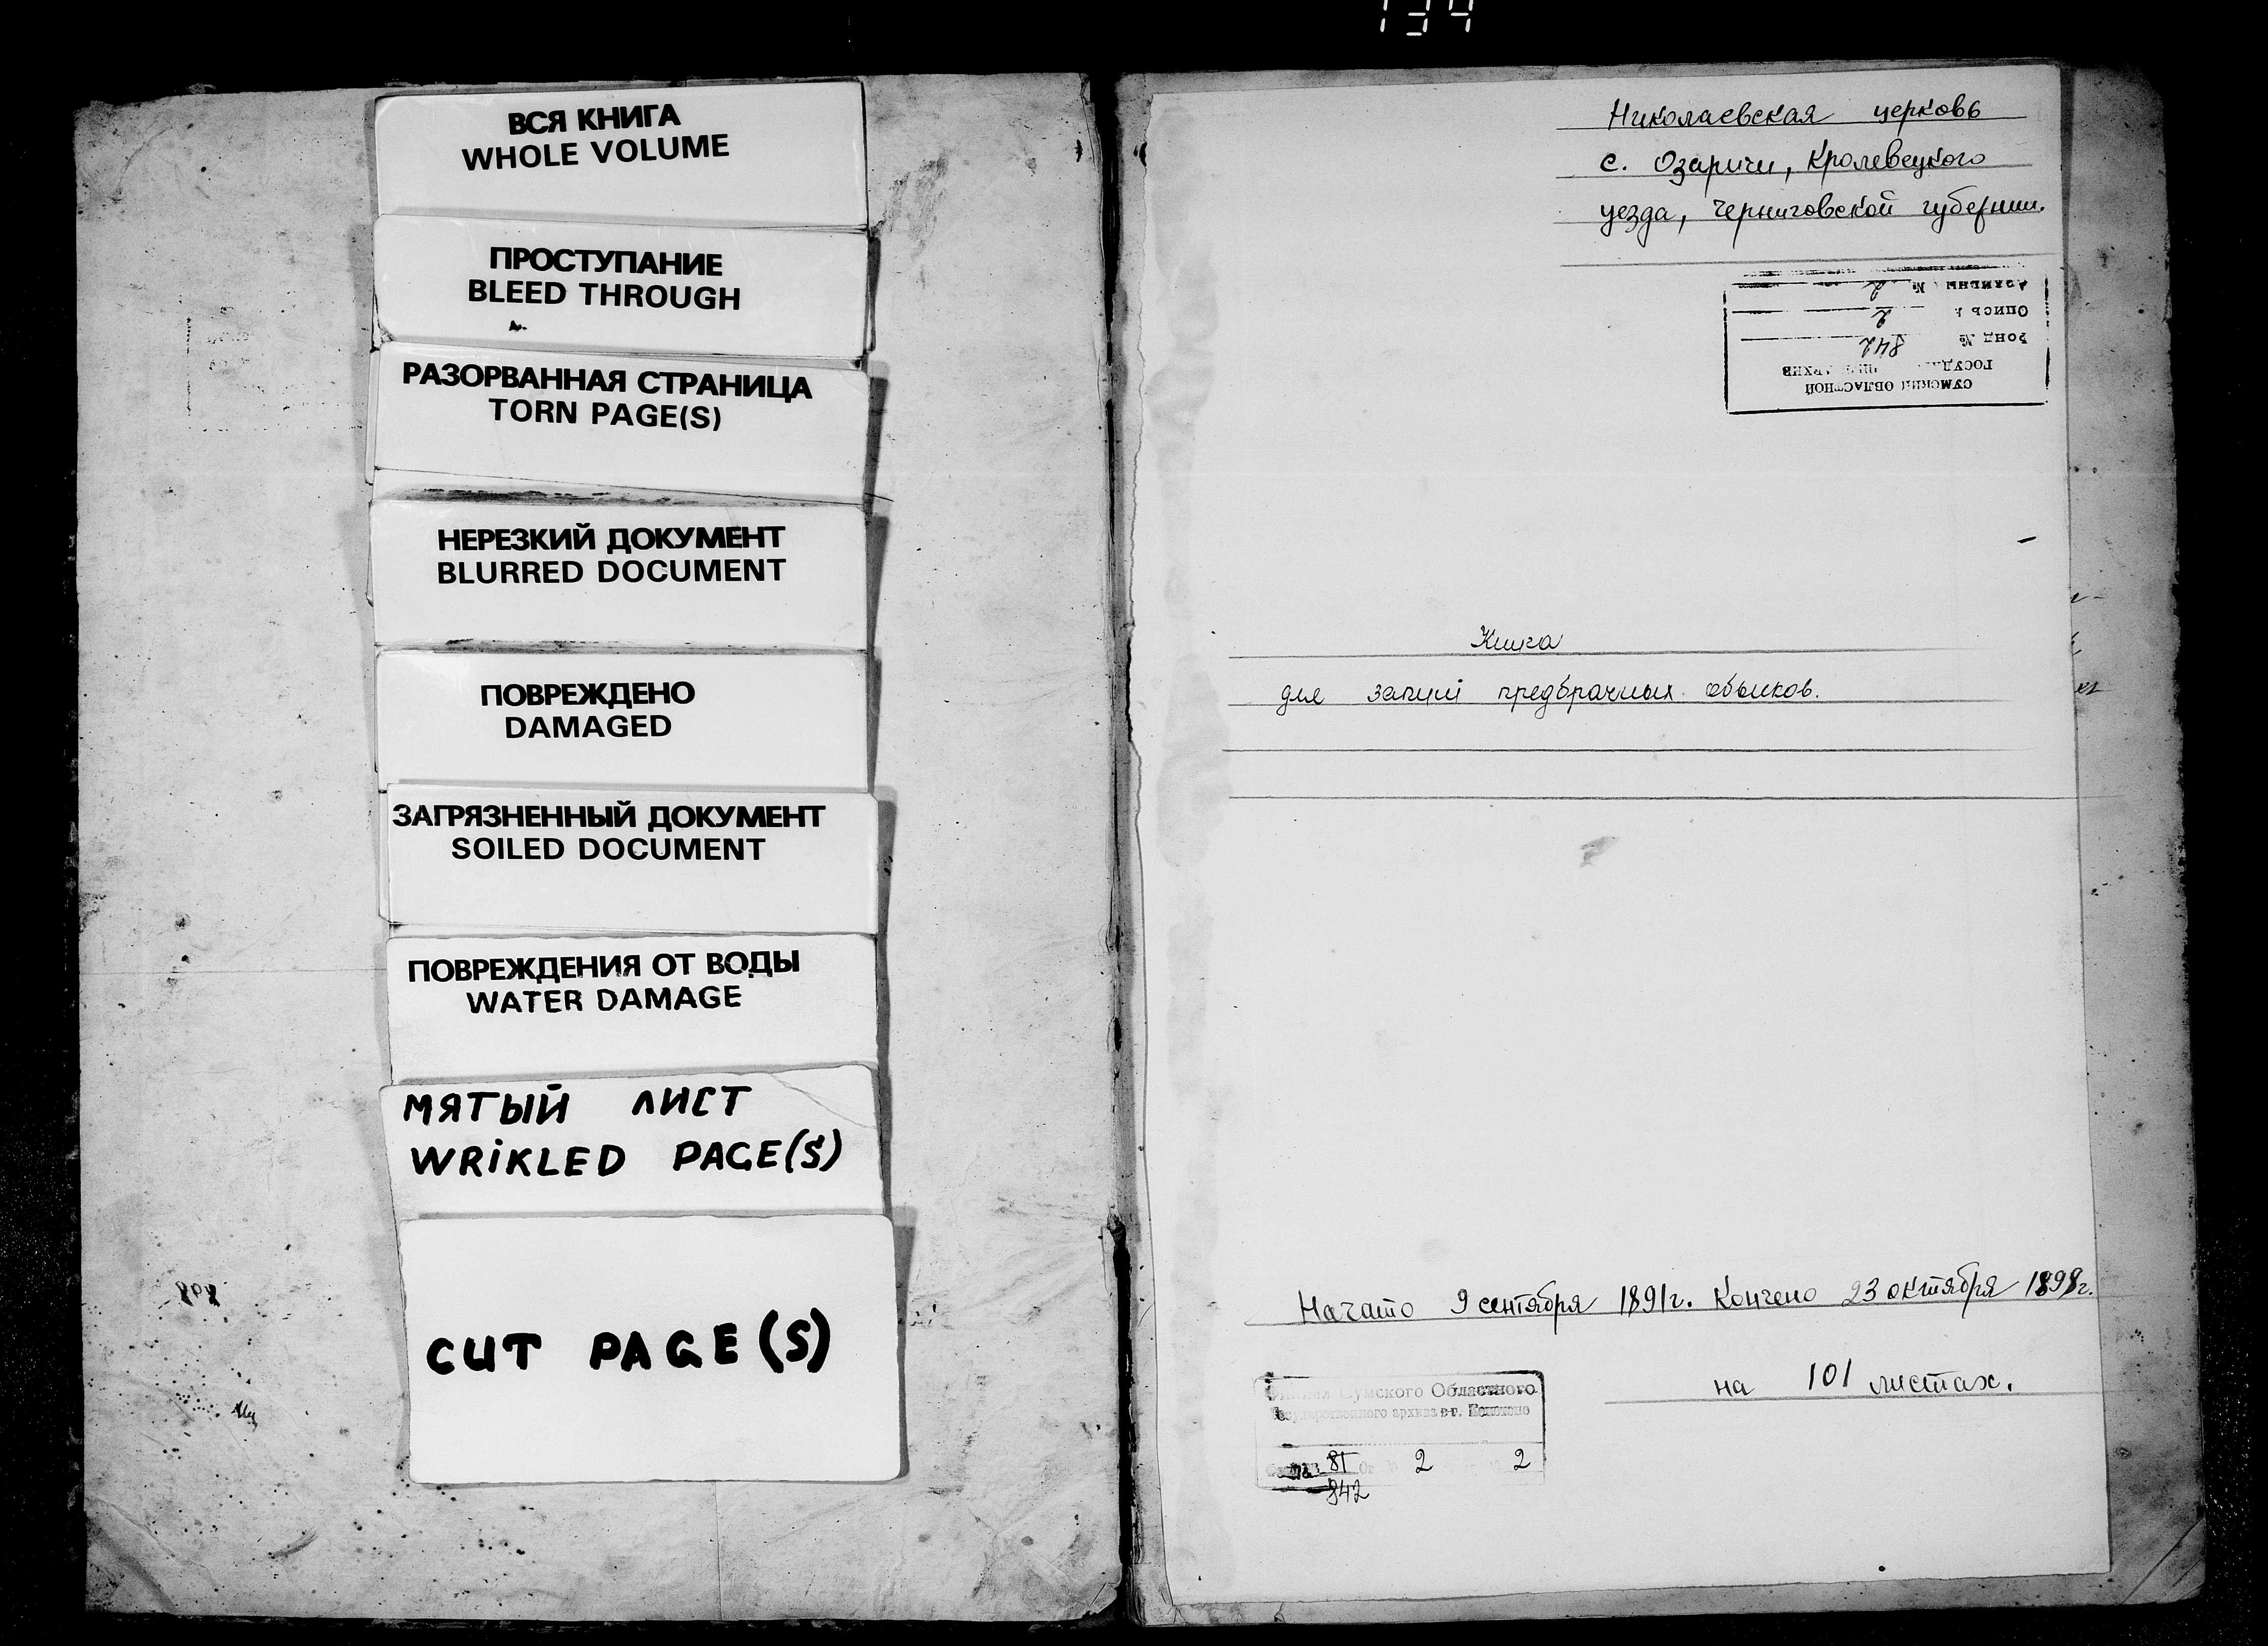 134
ВСЯ КНИГА
WHOLE VOLUME
ПРОСТУПАНИЕ
BLEED THROUGH
РАЗОРВАННАЯ СТРАНИЦА
TORN PAGE(S)
НЕРЕЗКИЙ ДОКУМЕНТ
BLURRED DOCUMENT
ПОВРЕЖДЕНО
DAMAGED
ЗАГРЯЗНЕННЫЙ ДОКУМЕНТ
SOILED DOCUMENT
ПОВРЕЖДЕНИЯ ОТ ВОДЫ
WATER DAMAGE
МЯТЫЙ ЛИСТ
WRIKLED PAGE(S)
CUT PAGE(S)
Николаевская церковь
с. Озаричи, Кролевецкого
уезда, Черниговской губернии.
СУМСКИЙ ОБЛАСТНОЙ
АРХИВ
ФОНД № 842
ОПИСЬ 2
№ 2
Книга
для записи предбрачных обысков.
Начато 9 сентября 1891г. Кончено 23 октября 1898г.
на 101 листах.
Филиал Сумского Областного
Государственного архива в г.
81 2 2
842